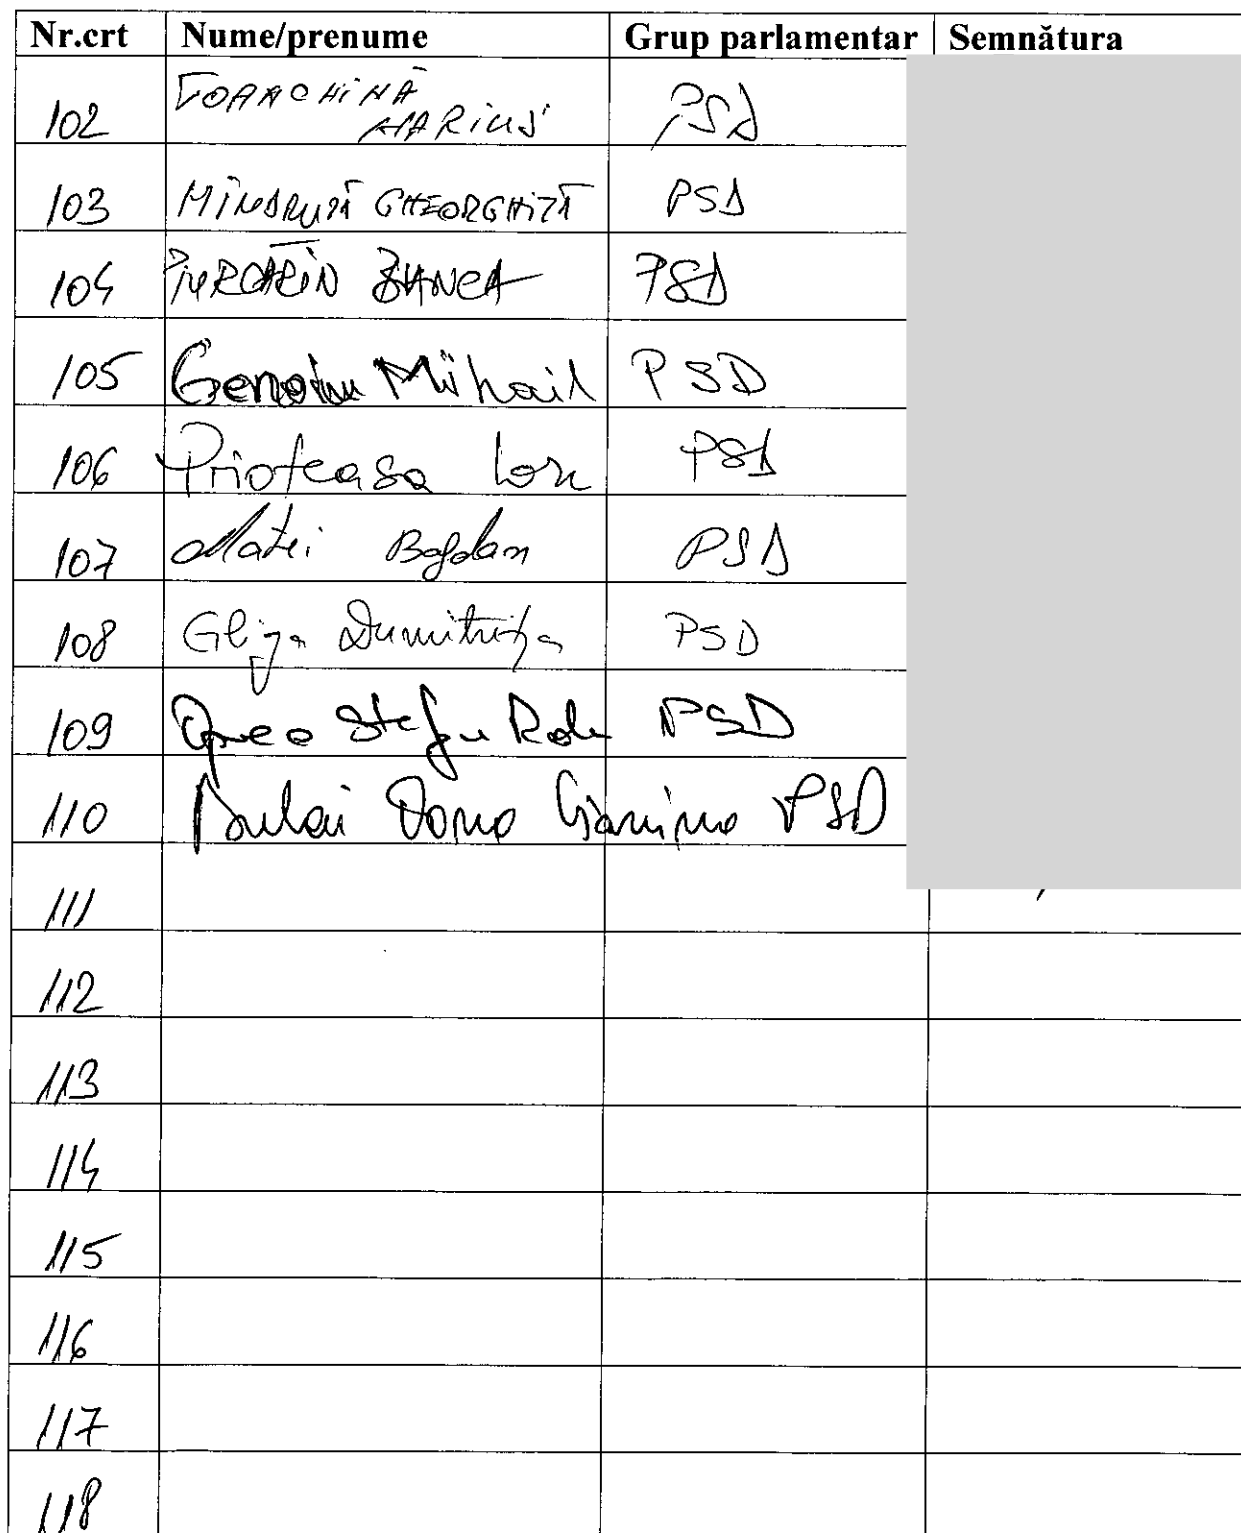 Nr.crt Nume/prenume Grup parlamentar Semnătura
102 TOANCHINĂ MARIUS PSD
103 MÎNDRUȚĂ GHEORGHIȚĂ PSD
104 PURCĂRIN BIANCA PSD
105 Genoiu Mihail PSD
106 Prioteasa Ion PSD
107 Matei Bogdan PSD
108 Gliga Dumitrița PSD
109 Stefan Radu PSD
110 Bulai Dana Gianina PSD
111
112
113
114
115
116
117
118